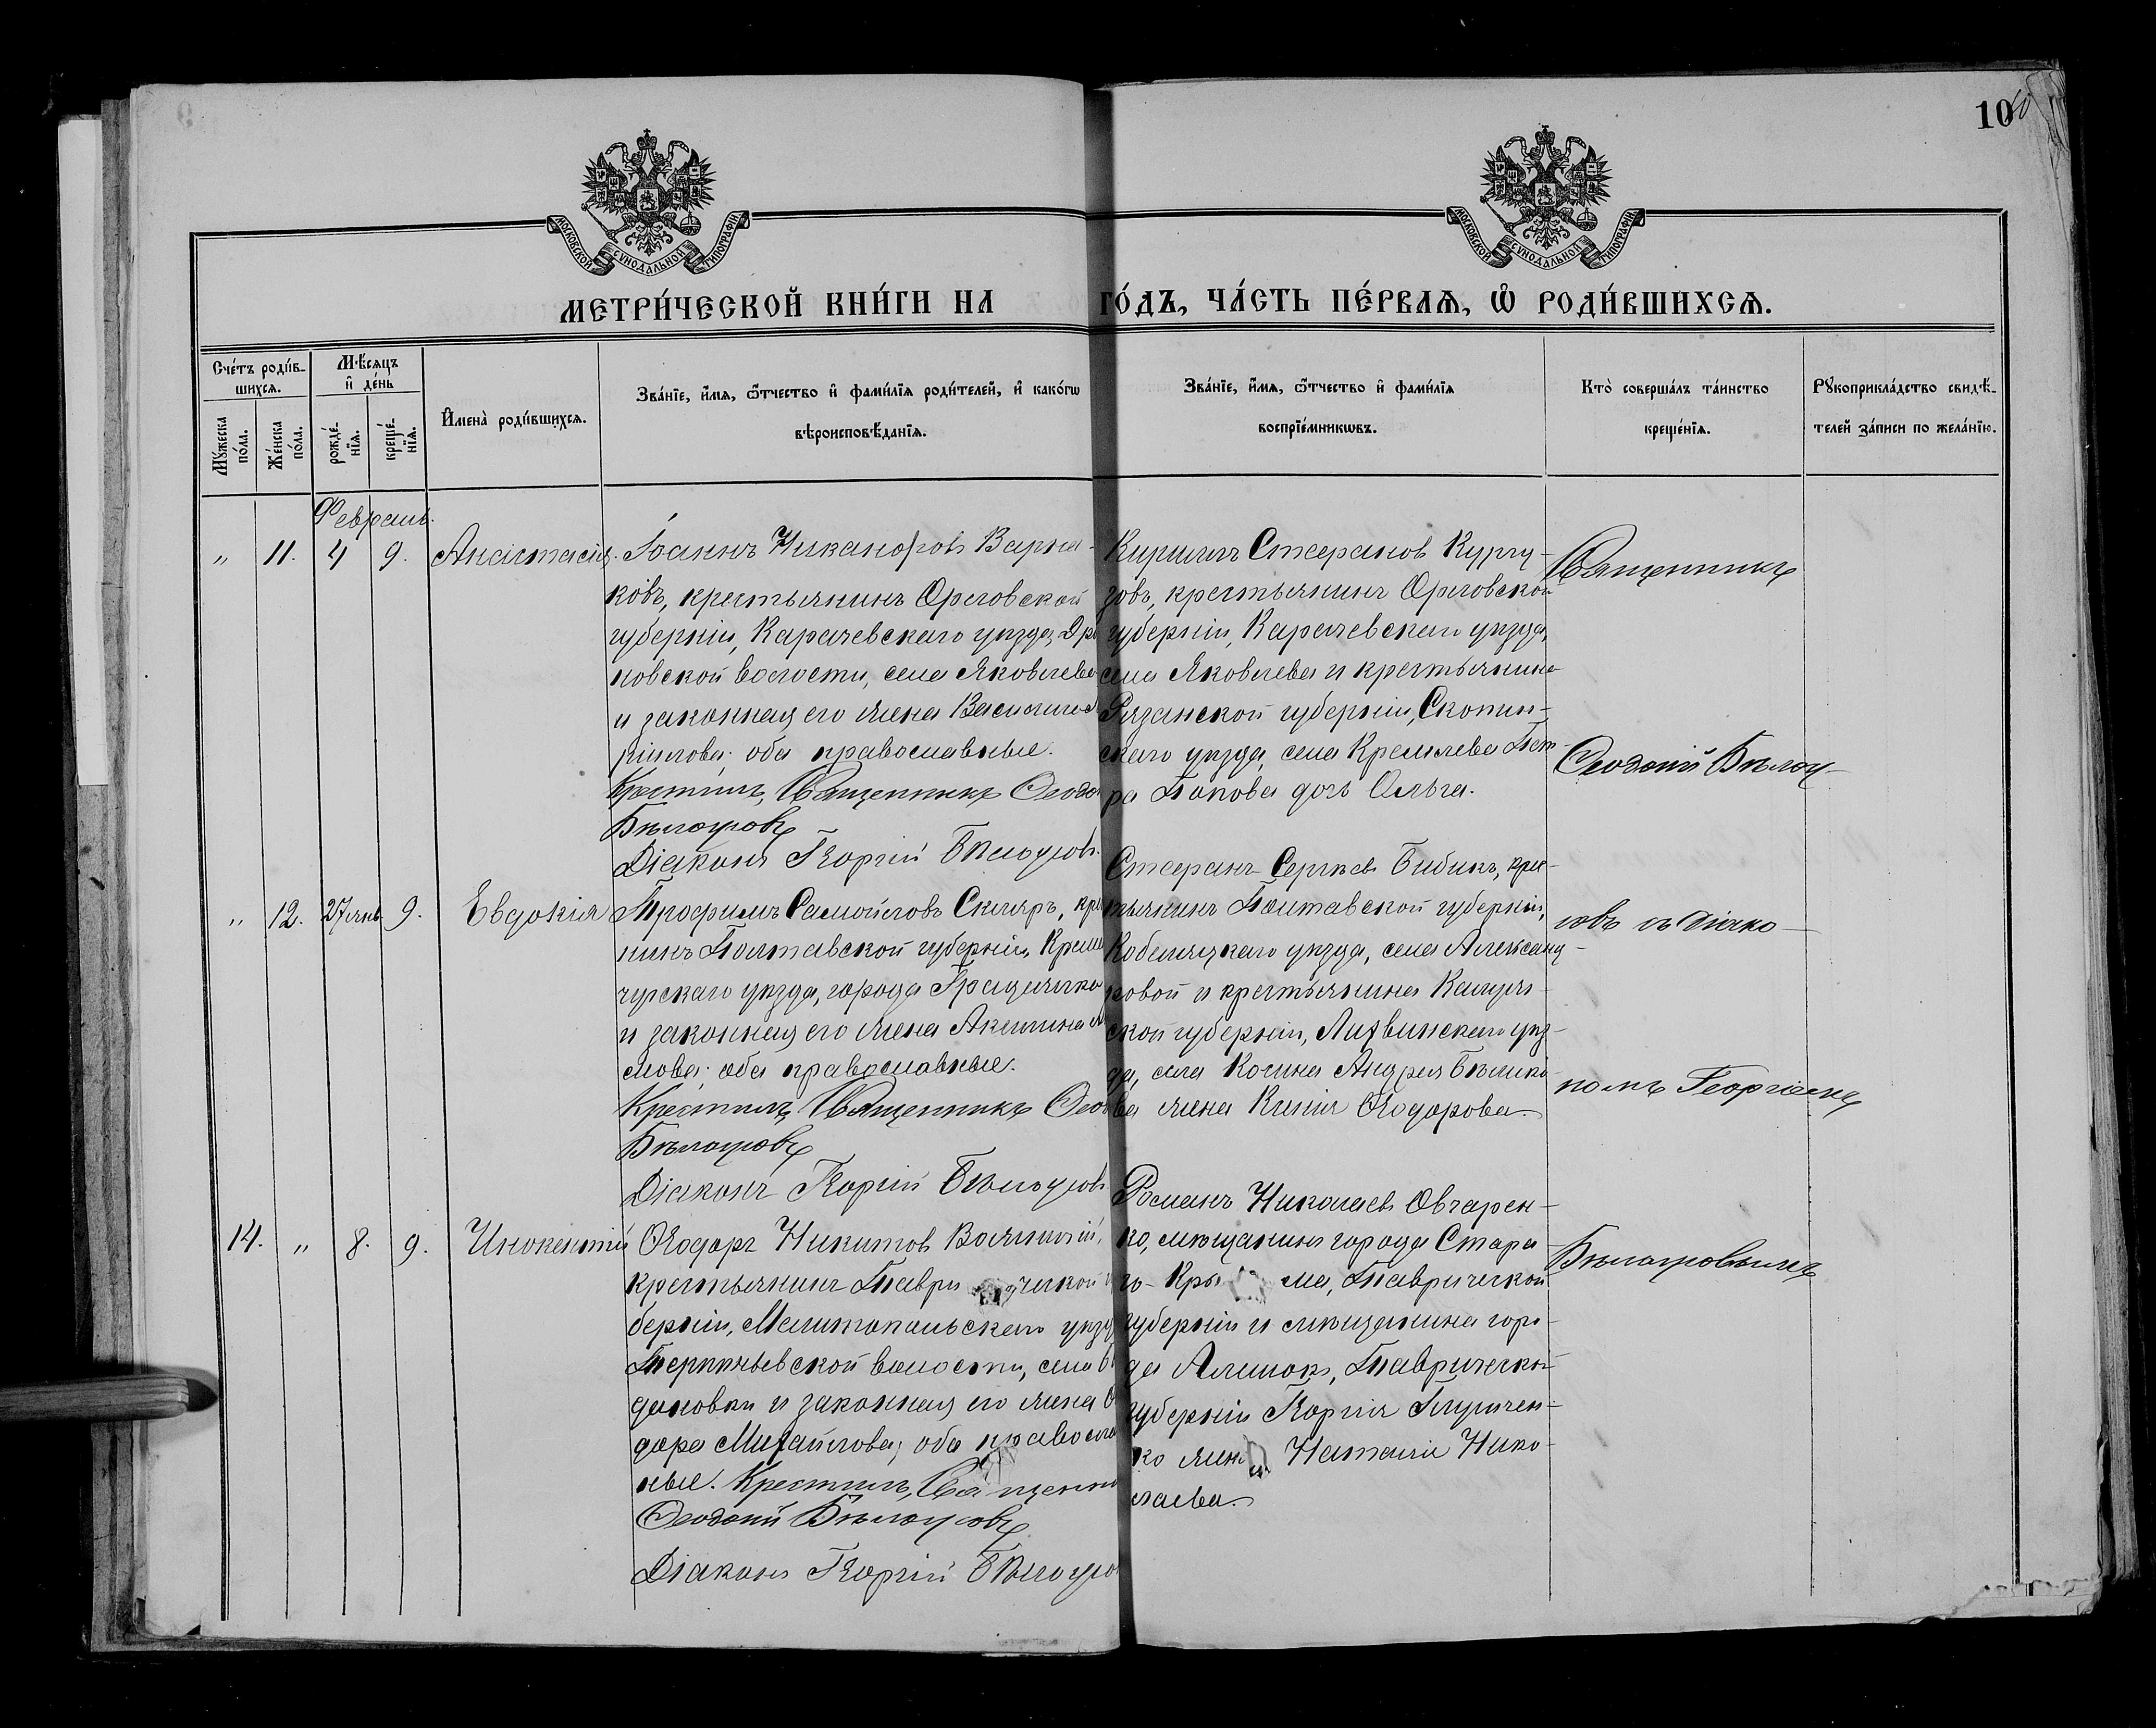 10
МОСКОВСКОЙ СѴНОДАЛЬНОЙ ТИПОГРАФІИ
МОСКОВСКОЙ СѴНОДАЛЬНОЙ ТИПОГРАФІИ
МЕТРИ́ЧЕСКОЙ КНИ́ГИ НА ГО́ДЪ, ЧА́СТЬ ПЕ́РВАѦ, Ѡ҆ РОДИ́ВШИХСѦ.
Сче́тъ роди́в-
шихсѧ.
Мꙋ́жеска
по́ла.
Же́нска
по́ла.
Мѣ́сѧцъ
и҆ де́нь
рожде́-
нїѧ.
креще́-
нїѧ.
И҆мена̀ роди́вшихсѧ.
Зва́нїе, и҆́мѧ, ѻ҆́тчество и҆ фами́лїѧ роди́телей, и҆ како́гѡ
вѣроисповѣ́данїѧ.
Зва́нїе, и҆́мѧ, ѻ҆́тчество и҆ фами́лїѧ
воспрїе́мникѡвъ.
Кто̀ соверша́лъ та́инство
креще́нїѧ.
Рꙋкоприкла́дство свидѣ́-
телей за́писи по жела́нїю.
Февраль.
„ 11. 4 9. Анастасія.
Іоаннъ Никаноровъ Варна-
ковъ, крестьянинъ Орловской
губерніи, Карачевскаго уѣзда, Дро
новской волости, села Яковлева
и законная его жена Василиса
оба православные.
Крестилъ, Священникъ Ѳеодо
Бѣлоусовъ
Діаконъ Георгій Бѣлоусовъ
Кириллъ Стефановъ Кургу-
зовъ, крестьянинъ Орловской
губерніи, Карачевскаго уѣзда,
села Яковлева и крестьянина
Рязанской губерніи, Скопин-
скаго уѣзда, села Кремлева Пет-
ра Попова дочь Ольга.
„ 12. 27 янв. 9. Евдокія
Трофимъ Самойловъ Скляръ, кре
нинъ Полтавской губерніи, Креме
чугскаго уѣзда, города Градижска
и законная его жена Акилина
мова; оба православные.
Крестилъ, Священникъ Ѳеод
Бѣлоусовъ
Діаконъ Георгій Бѣлоусовъ
Стефанъ Сергѣевъ Бибикъ, крес-
тьянинъ Полтавской губерніи,
Кобеляцкаго уѣзда, села Александ-
ровой и крестьянина Калуж-
ской губерніи, Лихвинскаго уѣз-
да, села Андрея Бѣлико-
ва жена Ксенія Ѳеодорова.
14. „ 8. 9. Инокентій
Ѳеодоръ Никитовъ
крестьянинъ Таврической гу
берніи, Мелитопольскаго уѣзда
Терпѣньевской волости, села Бо
дановки и законная его жена Ѳ
дора Михайлова, оба правосла
ные. Крестилъ, Священни
Ѳеодосій Бѣлоусовъ
Діаконъ Георгій Бѣлоусо
Романъ Николаевъ Овчарен-
ко, мѣщанинъ города Стара-
го-Крыма, Таврической
губерніи и мѣщанина горо-
да Алешокъ, Таврической
губерніи Георгія
ко жена Наталія Нико-
лаева.
Священникъ
Ѳеодосій Бѣлоу-
совъ съ діако-
номъ Георгіемъ
Бѣлоусовымъ